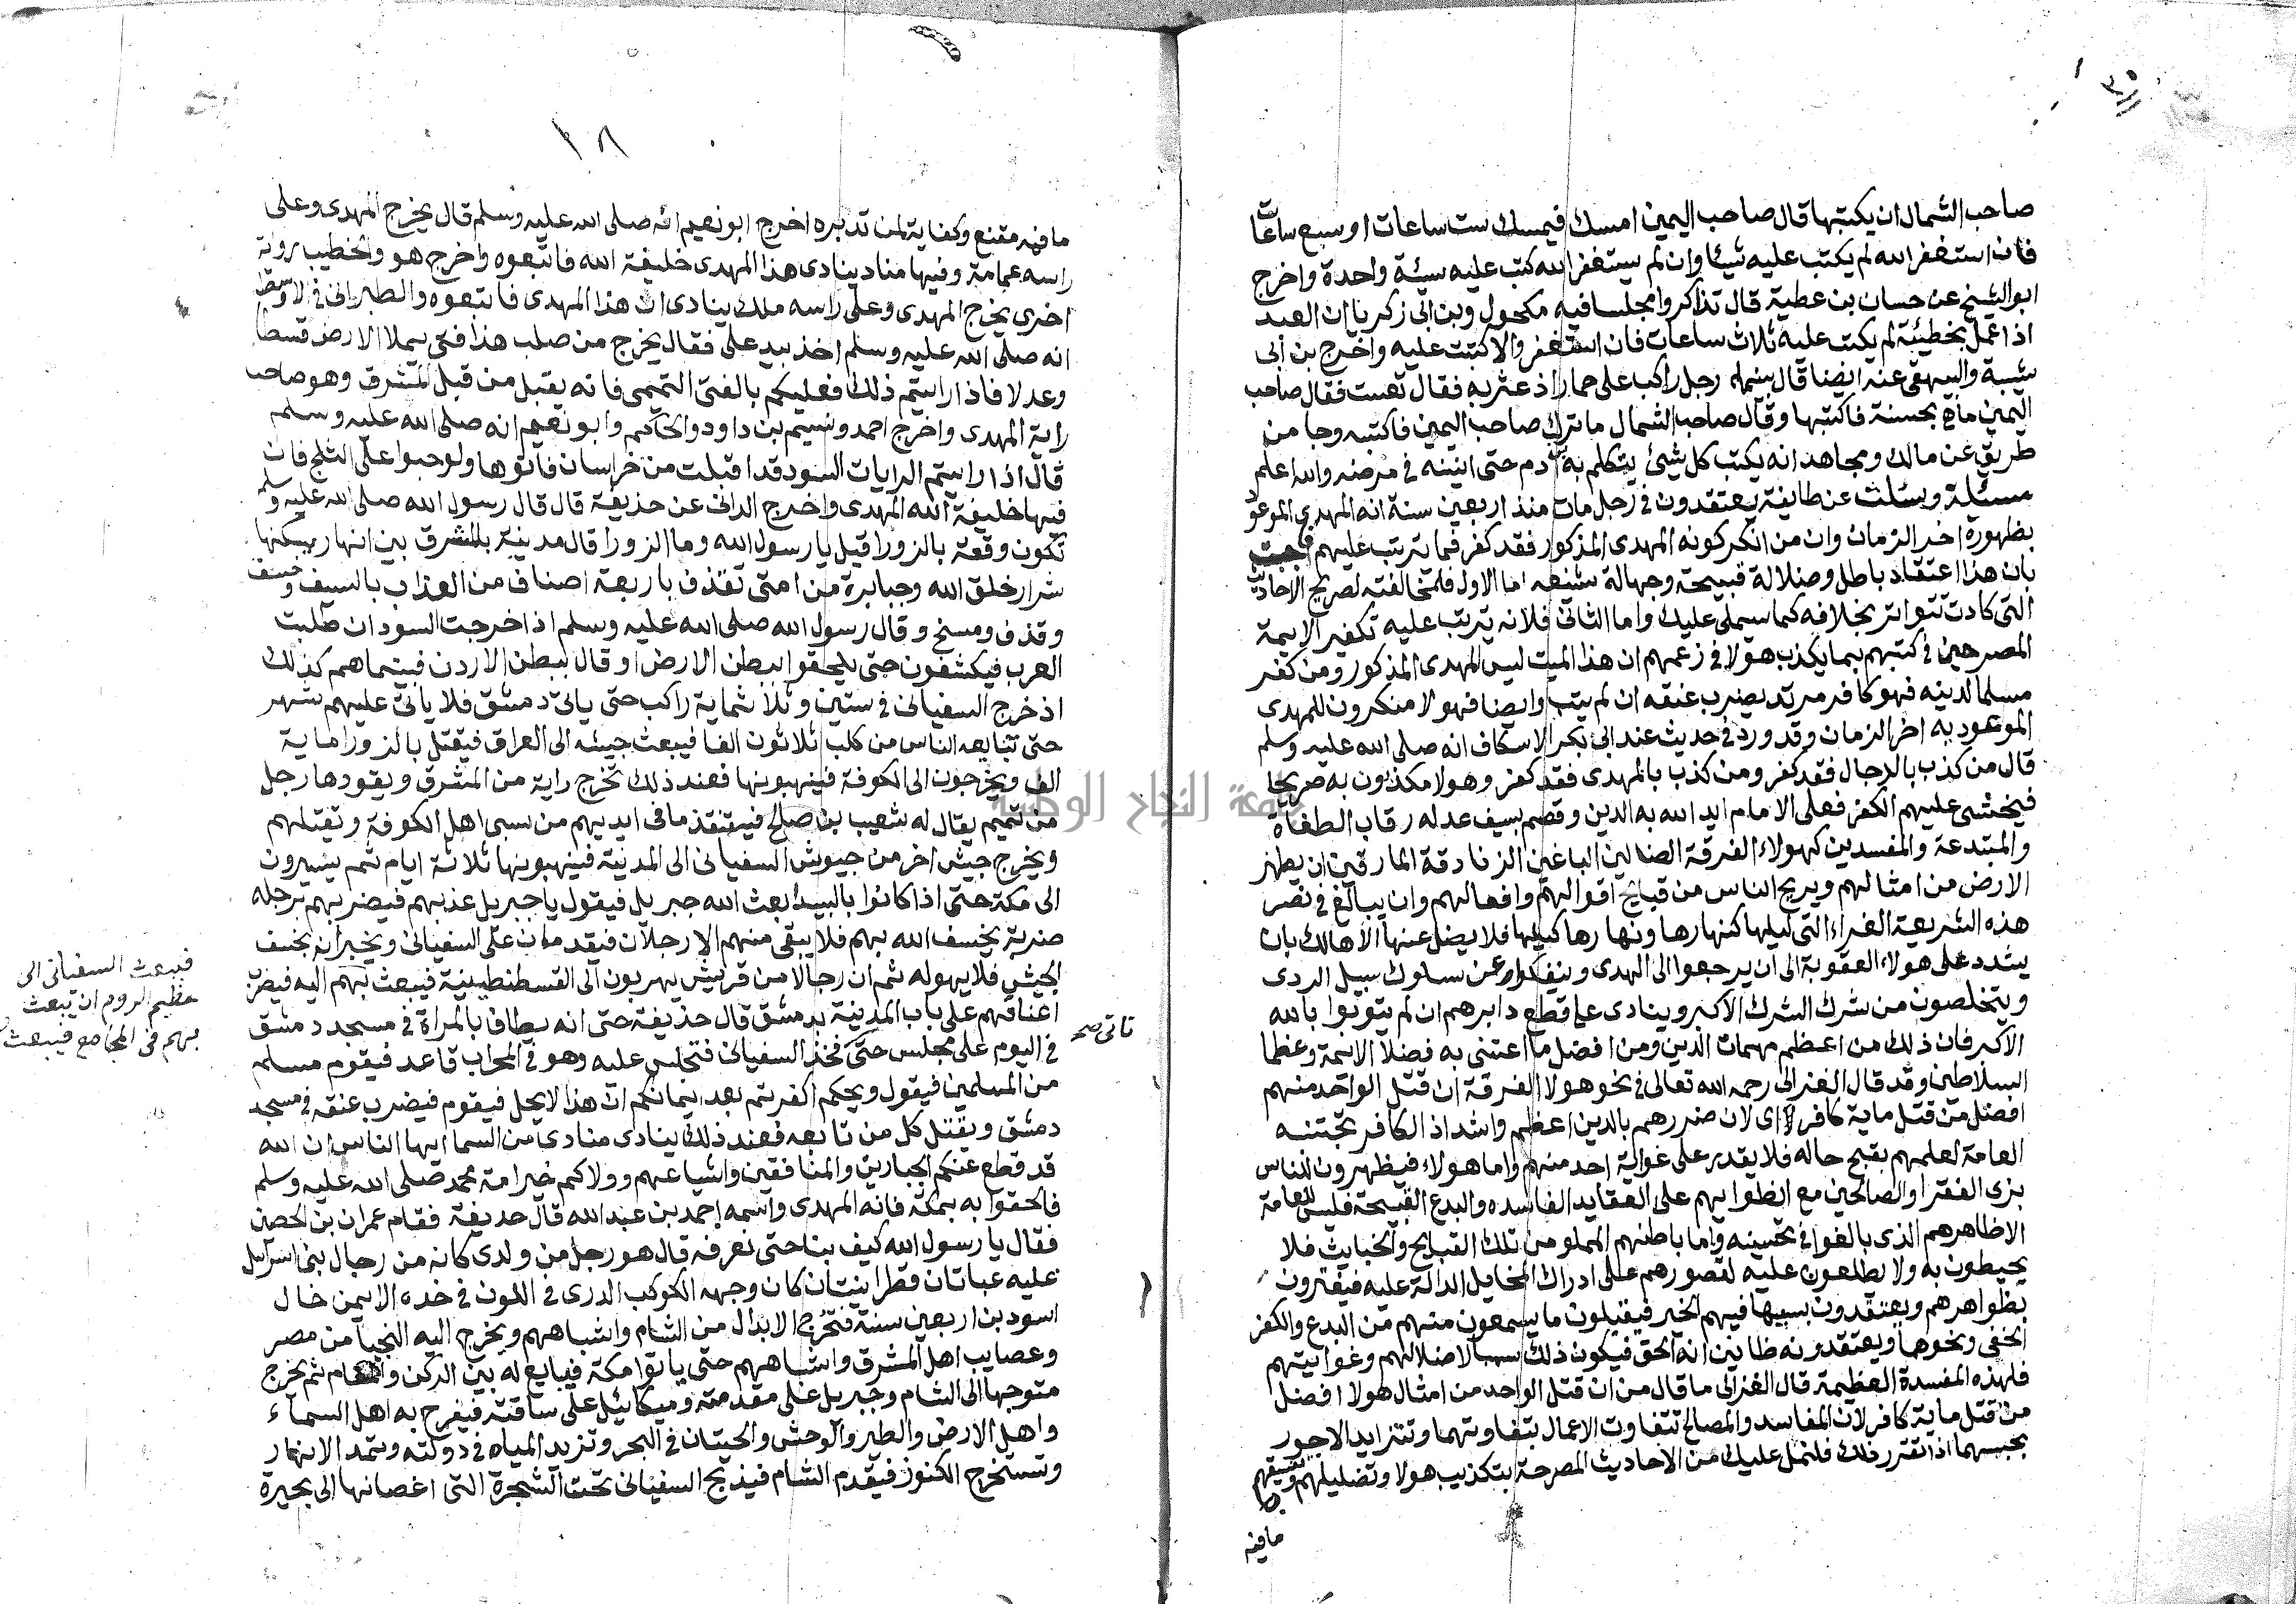 صاحب الشمال ان يكتبها قال صاحب اليمين امسك فيمسك ست ساعات او سبع ساعات
فان استغفر الله لم يكتب عليه شيئا وان لم يستغفر الله كتب عليه سيئة واحدة واخرج
ابو الشيخ عن حسان بن عطية قال تذاكروا مجلسا فيه مكحول وبن ابي زكريا ان العبد
اذا عمل بخطيئة لم يكتب عليه ثلاث ساعات فان استغفر والا كتبت عليه واخرج بن ابي
شيبة والبيهقي عنه ايضا قال بينما رجل راكب على حمار اذ عثر به فقال تعست فقال صاحب
اليمين ما هي بحسنة فاكتبها وقال صاحب الشمال ما ترك صاحب اليمين فاكتبه وجا من
طريق عن مالك ومجاهد انه يكتب كل شيئ يتكلم به بن ادم حتى انينه في مرضه والله اعلم
مسئلة وسئلت عن طايفة يعتقدون في رجل مات منذ اربعين سنة انه المهدي الموعود
بظهوره اخر الزمان وان من انكر كونه المهدي المذكور فقد كفر فما يترتب عليهم فاجبت
بان هذا اعتقاد باطل وضلالة قبيحة وجهالة شنيعه اما الاول فلمخالفته لصريح الاحاديث
التي كادت تتواتر بخلافه كما سيملى عليك واما الثاني فلانه يترتب عليه تكفير الايمة
المصرحين في كتبهم بما يكذب هولا في زعمهم ان هذا الميت ليس المهدي المذكور ومن كفر
مسلما لدينه فهو كافر مرتد يضرب عنقه ان لم يتب وايضا فهولا منكرون للمهدي
الموعود به اخر الزمان وقد ورد في حديث عند ابي بكر الاسكاف انه صلى الله عليه وسلم
قال من كذب بالدجال فقد كفر ومن كذب بالمهدي فقد كفر وهولا مكذبون به صريحا
فيخشى عليهم الكفر فعلى الامام ايد الله به الدين وقصم بسيف عدله رقاب الطغاة
والمبتدعة والمفسدين كهولاء الفرقة الضالين الباغين الزنادقة المارقين ان يطهر
الارض من امثالهم ويريح الناس من قبايح اقوالهم وافعالهم وان يبالغ في نصر
هذه الشريعة الغراء التي ليلها كنهارها ونهارها كليلها فلا يضل عنها الا هالك بان
يشدد على هولاء العقوبة الى ان يرجعوا الى الهدى وينفكوا عن سلوك سبيل الردى
ويتخلصون من شرك الشرك الاكبر وينادى على قطع دابرهم ان لم يتوبوا بالله
الاكبر فان ذلك من اعظم مهمات الدين ومن افضل ما اعتنى به فضلا الائمة وعظما
السلاطين وقد قال الغزالي رحمه الله تعالى في نحو هولا الفرقة ان قتل الواحد منهم
افضل من قتل ماية كافر اي لان ضررهم بالدين اعظم واشد اذ الكافر تجتنبه
العامة لعلمهم بقبح حاله فلا يقدر على غواية احد منهم واما هولاء فيظهرون للناس
بزي الفقرا والصالحين مع انطوايهم على العقايد الفاسده والبدع القبيحة فليس للعامة
الا ظاهرهم الذي بالغوا في تحسينه واما باطنهم المملو من تلك القبايح والخبايث فلا
يحيطون به ولا يطلعون عليه لقصورهم على ادراك المخايل الدالة عليه فيغترون
بظواهرهم ويعتقدون بسببها فيهم الخير فيقبلون ما يسمعون منهم من البدع والكفر
الخفي ونحوها ويعتقدونه ظانين انه الحق فيكون ذلك سببا لاضلالهم وغوايتهم
فلهذه المفسدة العظيمة قال الغزالي ما قال من ان قتل الواحد من امثال هولا افضل
من قتل ماية كافر لان المفاسد والمصالح تتفاوت الاعمال بتفاوتهما وتتزايد الاجور
بحبسهما اذا تقرر ذلك فلنمل عليك من الاحاديث المصرحة بتكذيب هولا وتضليلهم وتفسيقهم
ما فيه
١٨
ما فيه مقنع وكفاية لمن تدبره اخرج ابو نعيم انه صلى الله عليه وسلم قال يخرج المهدي وعلى
راسه عمامة وفيها مناد ينادي هذا المهدي خليفة الله فاتبعوه واخرج هو والخطيب رواية
اخرى يخرج المهدي وعلى راسه ملك ينادي ان هذا المهدي فاتبعوه والطبراني في الاوسط
انه صلى الله عليه وسلم اخذ بيد علي فقال يخرج من صلب هذا فتى يملا الارض قسطا
وعدلا فاذا رايتم ذلك فعليكم بالفتى التميمي فانه يقبل من قبل المشرق وهو صاحب
راية المهدي واخرج احمد ونعيم بن داود والحاكم وابو نعيم انه صلى الله عليه وسلم
قال اذا رايتم الرايات السود قد اقبلت من خراسان فاتوها ولو حبوا على الثلج فان
فيها خليفة الله المهدي واخرج الداني عن حذيفة قال قال رسول الله صلى الله عليه وسلم
تكون وقعة بالزورا قيل يا رسول الله وما الزورا قال مدينة بالمشرق بين انهار يسكنها
شرار خلق الله وجبابرة من امتي تقذف باربعة اصناف من العذاب بالسيف وخسف
وقذف ومسخ وقال رسول الله صلى الله عليه وسلم اذا خرجت السودان طلبت
العرب فيكشفون حتى يلحقوا ببطن الارض او قال ببطن الاردن فبينما هم كذلك
اذ خرج السفياني في ستين وثلاثماية راكب حتى ياتي دمشق فلا ياتي عليهم شهر
حتى تتابعه الناس من كلب ثلاثون الفا فيبعث جيشه الى العراق فيقتل بالزورا ماية
الف ويخرجون الى الكوفة فينهبونها فعند ذلك تخرج راية من المشرق ويقودها رجل
من تميم يقال له شعيب بن صالح فيستنقذ ما في ايديهم من سبي اهل الكوفة وتقتلهم
ويخرج جيش اخر من جيوش السفياني الى المدينة فينهبونها ثلاثة ايام ثم يسيرون
الى مكة حتى اذا كانوا بالبيدا بعث الله جبريل فيقول يا جبريل عذبهم فيضربهم برجله
ضربة يخسف الله بهم فلا يبقى منهم الا رجلان فيقدمان على السفياني ويخبرانه بخسف
الجيش فلا يهوله ثم ان رجالا من قريش يهربون الى القسطنطينية فيبعث بهم اليه فيضرب
اعناقهم على باب المدينة بدمشق قال حذيفة حتى انه يطاف بالمراة في مسجد دمشق
في اليوم على مجلس حتى فخذ السفياني فتجلس عليه وهو في المحراب قاعد فيقوم مسلم
من المسلمين فيقول ويحكم اكفرتم بعد ايمانكم ان هذا لا يحل فيقوم فيضرب عنقه في مسجد
دمشق ويقتل كل من تابعه فعند ذلك ينادي منادي من السما ايها الناس ان الله
قد قطع عنكم الجبارين والمنافقين واشياعهم وولاكم خير امة محمد صلى الله عليه وسلم
فالحقوا به بمكة فانه المهدي واسمه احمد بن عبد الله قال حذيفة فقام عمران بن الحصين
فقال يا رسول الله كيف بنا حتى نعرفه قال هو رجل من ولدي كانه من رجال بني اسرايل
عليه عباتان قطرانيتان كان وجهه الكوكب الدري في اللون في خده الايمن خال
اسود بن اربعين سنة فتخرج الابدال من الشام واشباههم ويخرج اليه النجبا من مصر
وعصايب اهل المشرق واشباههم حتى ياتوا مكة فيبايع له بين الركن والمقام ثم يخرج
متوجها الى الشام وجبريل على مقدمته وميكائيل على ساقته فيفرح به اهل السماء
واهل الارض والطير والوحش والحيتان في البحر وتزيد المياه في دولته وتمد الانهار
وتستخرج الكنوز فيقدم الشام فيذبح السفياني تحت الشجرة التي اغصانها الى بحيرة
تاتي صح
فيبعث السفياني الى
عظيم الروم ان يبعث
بهم في المجامع فيبعث
جامعة النجاح الوطنية